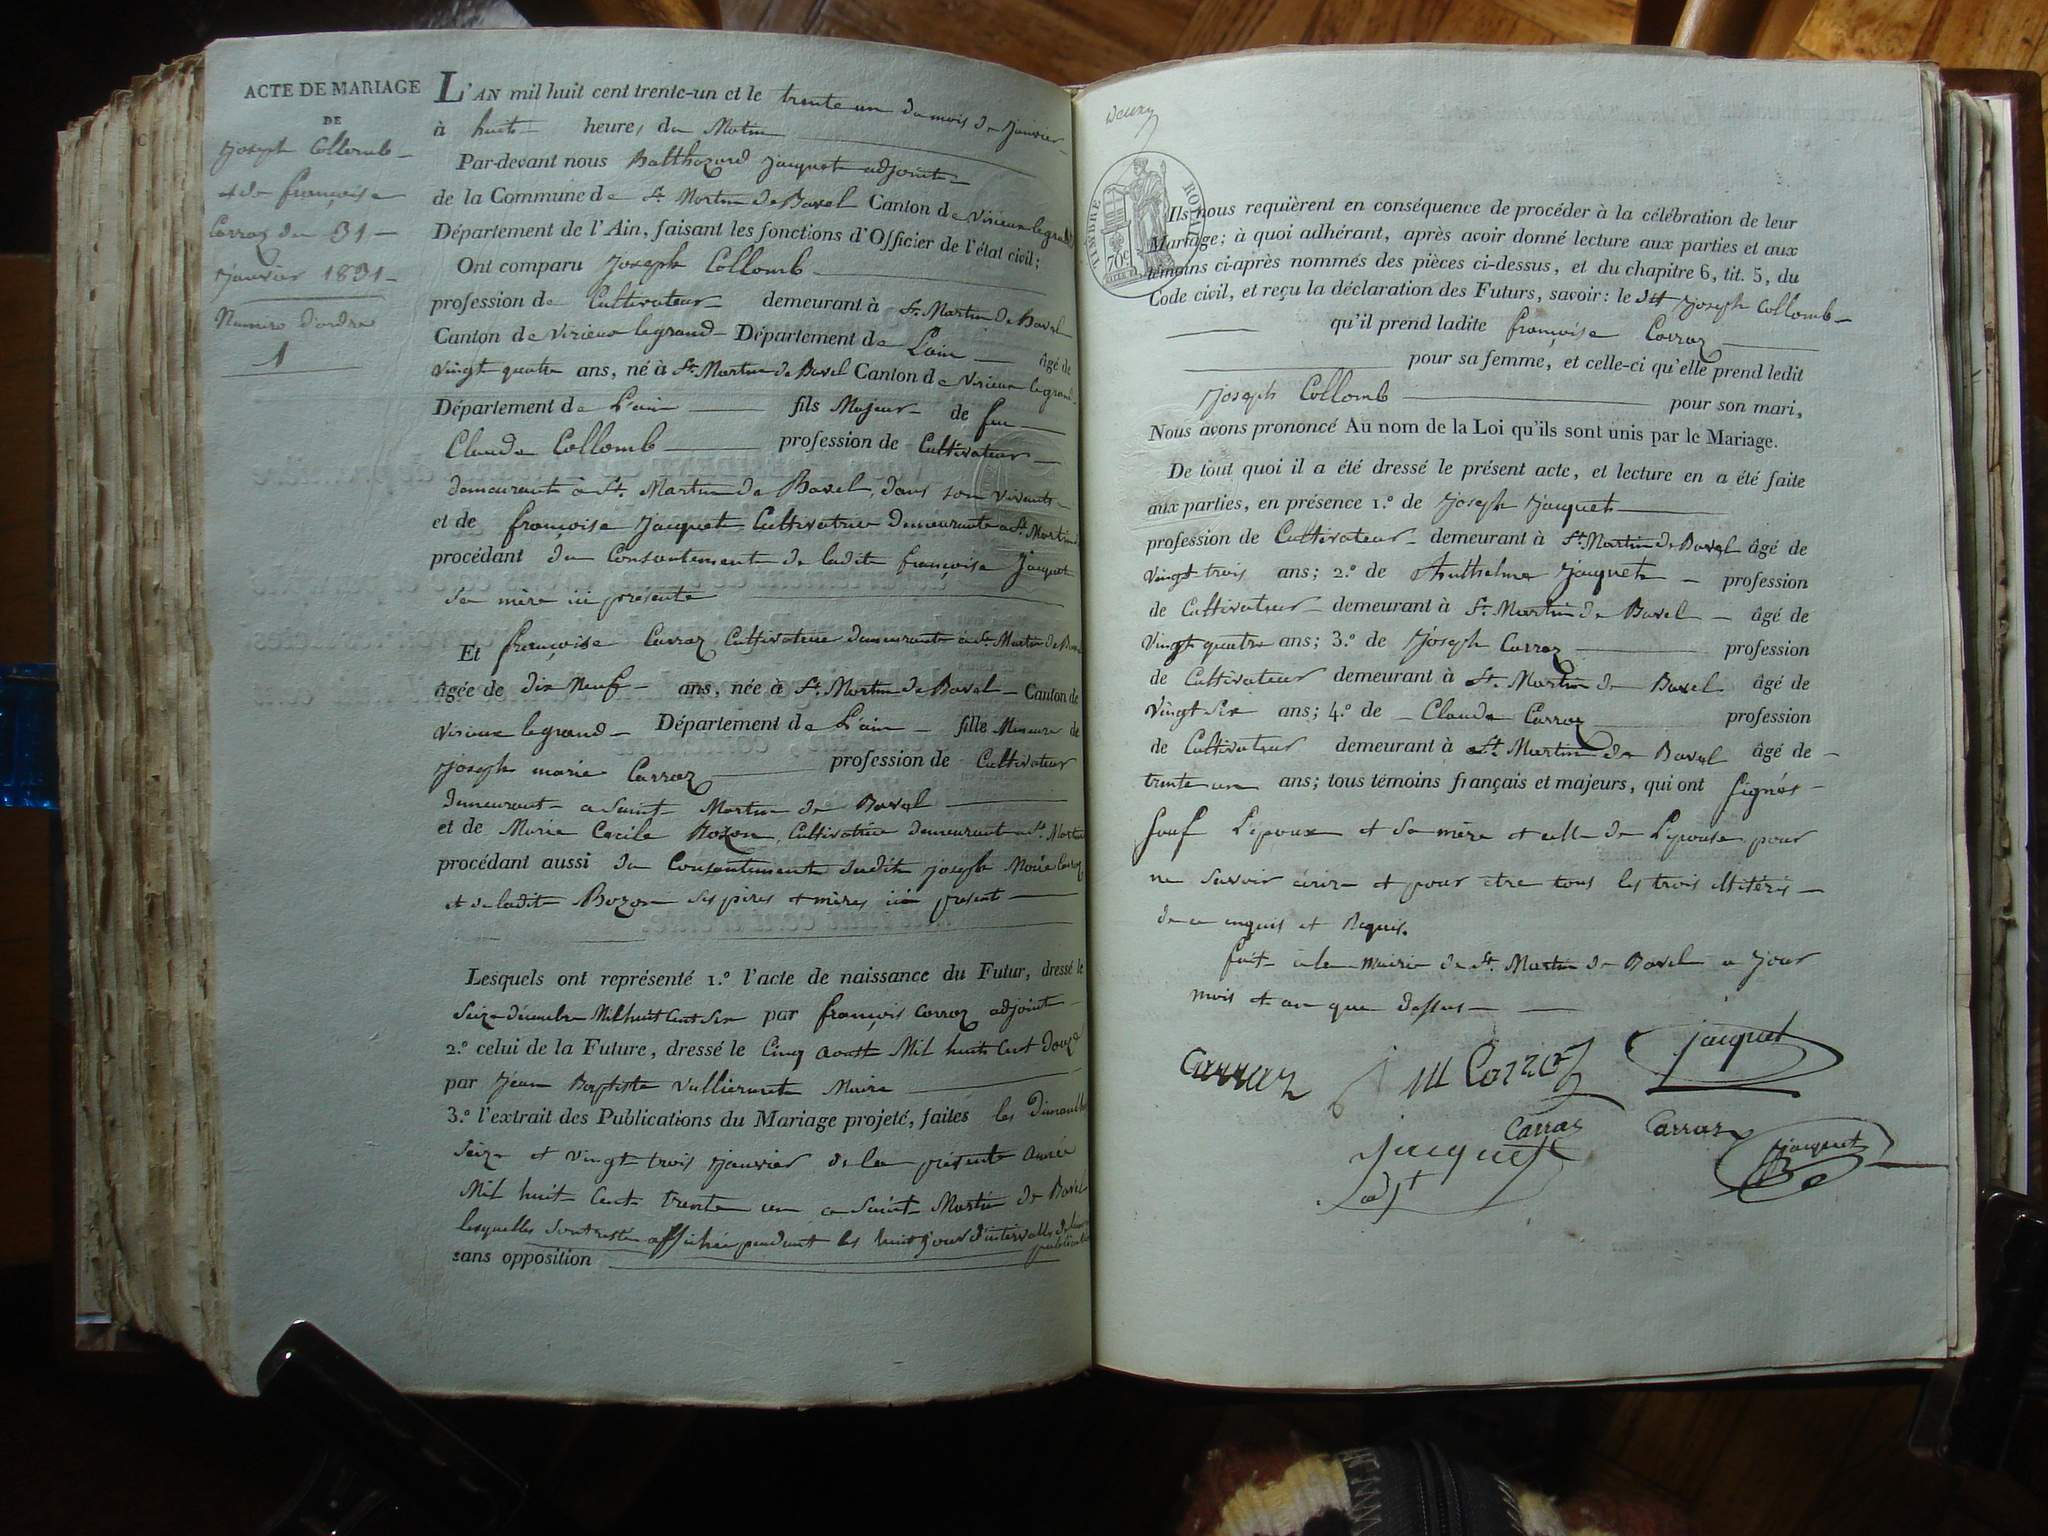 ACTE DE MARIAGE
DE
Joseph Collomb
et de françoise
Carraz du 31
janvier 1831
Numero d'ordre
1
L'AN mil huit cent trente-un et le trente un du mois de Janvier
à huit heures du Matin
Par-devant nous Balthazard Jacquet adjoint
de la Commune de St. Martin de Bavel Canton de Virieux legrand
Département de l'Ain, faisant les fonctions d'Officier de l'état civil;
Ont comparu Joseph Collomb
profession de Cultivateur demeurant à St. Martin de Bavel
Canton de Virieux legrand Département de Lain âgé de
vingt quatre ans, né à St. Martin de Bavel Canton de Virieux legrand
Département de L'ain fils Majeur de feu
Claude Collomb profession de Cultivateur
demeurant à St. Martin de Bavel, dans son vivant
et de françoise Jacquet Cultivatrice demeurante a St. Martin
procédant du Consentement de ladite françoise Jacquet
sa mère ici présente
Et françoise Carraz Cultivatrice demeurante à St. Martin de Bavel
âgée de dix Neuf ans, née à St. Martin de Bavel Canton de
Virieux legrand Département de L'ain fille Mineure de
Joseph marie Carraz profession de Cultivateur
demeurant a Saint Martin de Bavel
et de Marie Cecile Bozon, Cultivatrice demeurante a St. Martin
procédant aussi du Consentement dudit joseph Marie Carraz
et de ladite Bozon ses pères et mères ici présent
Lesquels ont représenté 1.º l'acte de naissance du Futur, dressé le
Seize décembre Mil huit Cent Six par françois Carraz adjoint
2.º celui de la Future, dressé le Cinq aoust Mil huit Cent Douze
par Jean Baptiste Vullierment Maire
3.º l'extrait des Publications du Mariage projeté, faites les Dimanches
Seize et vingt trois Janvier de la présente année
Mil huit Cent trente un a Saint Martin de Bavel
lesquelles sont restée affichée pendant les huit jour d'intervalle de
publication
sans opposition
TIMBRE ROYAL
70c
Ils nous requièrent en conséquence de procéder à la célébration de leur
Mariage; à quoi adhérant, après avoir donné lecture aux parties et aux
témoins ci-après nommés des pièces ci-dessus, et du chapitre 6, tit. 5, du
Code civil, et reçu la déclaration des Futurs, savoir: le dit Joseph Collomb
qu'il prend ladite françoise Carraz
pour sa femme, et celle-ci qu'elle prend ledit
Joseph Collomb pour son mari,
Nous avons prononcé Au nom de la Loi qu'ils sont unis par le Mariage.
De tout quoi il a été dressé le présent acte, et lecture en a été faite
aux parties, en présence 1.º de Joseph Jacquet
profession de Cultivateur demeurant à St. Martin de Bavel âgé de
vingt trois ans; 2.º de Anthelme Jacquet profession
de Cultivateur demeurant à St. Martin de Bavel âgé de
vingt quatre ans; 3.º de Joseph Carraz profession
de Cultivateur demeurant à St. Martin de Bavel âgé de
vingt Six ans; 4.º de Claude Carraz profession
de Cultivateur demeurant à St. Martin de Bavel âgé de
trente un ans; tous témoins français et majeurs, qui ont Signés
Sauf L'époux et Sa mère et celle de L'épouse pour
ne Savoir écrire et pour etre tous les trois illitérés
de ce enquis et Requis.
fait à la Mairie de St. Martin de Bavel a Jour
mois et an que dessus
Carraz J M Carraz Jacquet
Carraz Carraz Jacquet
Jacquet
adjt